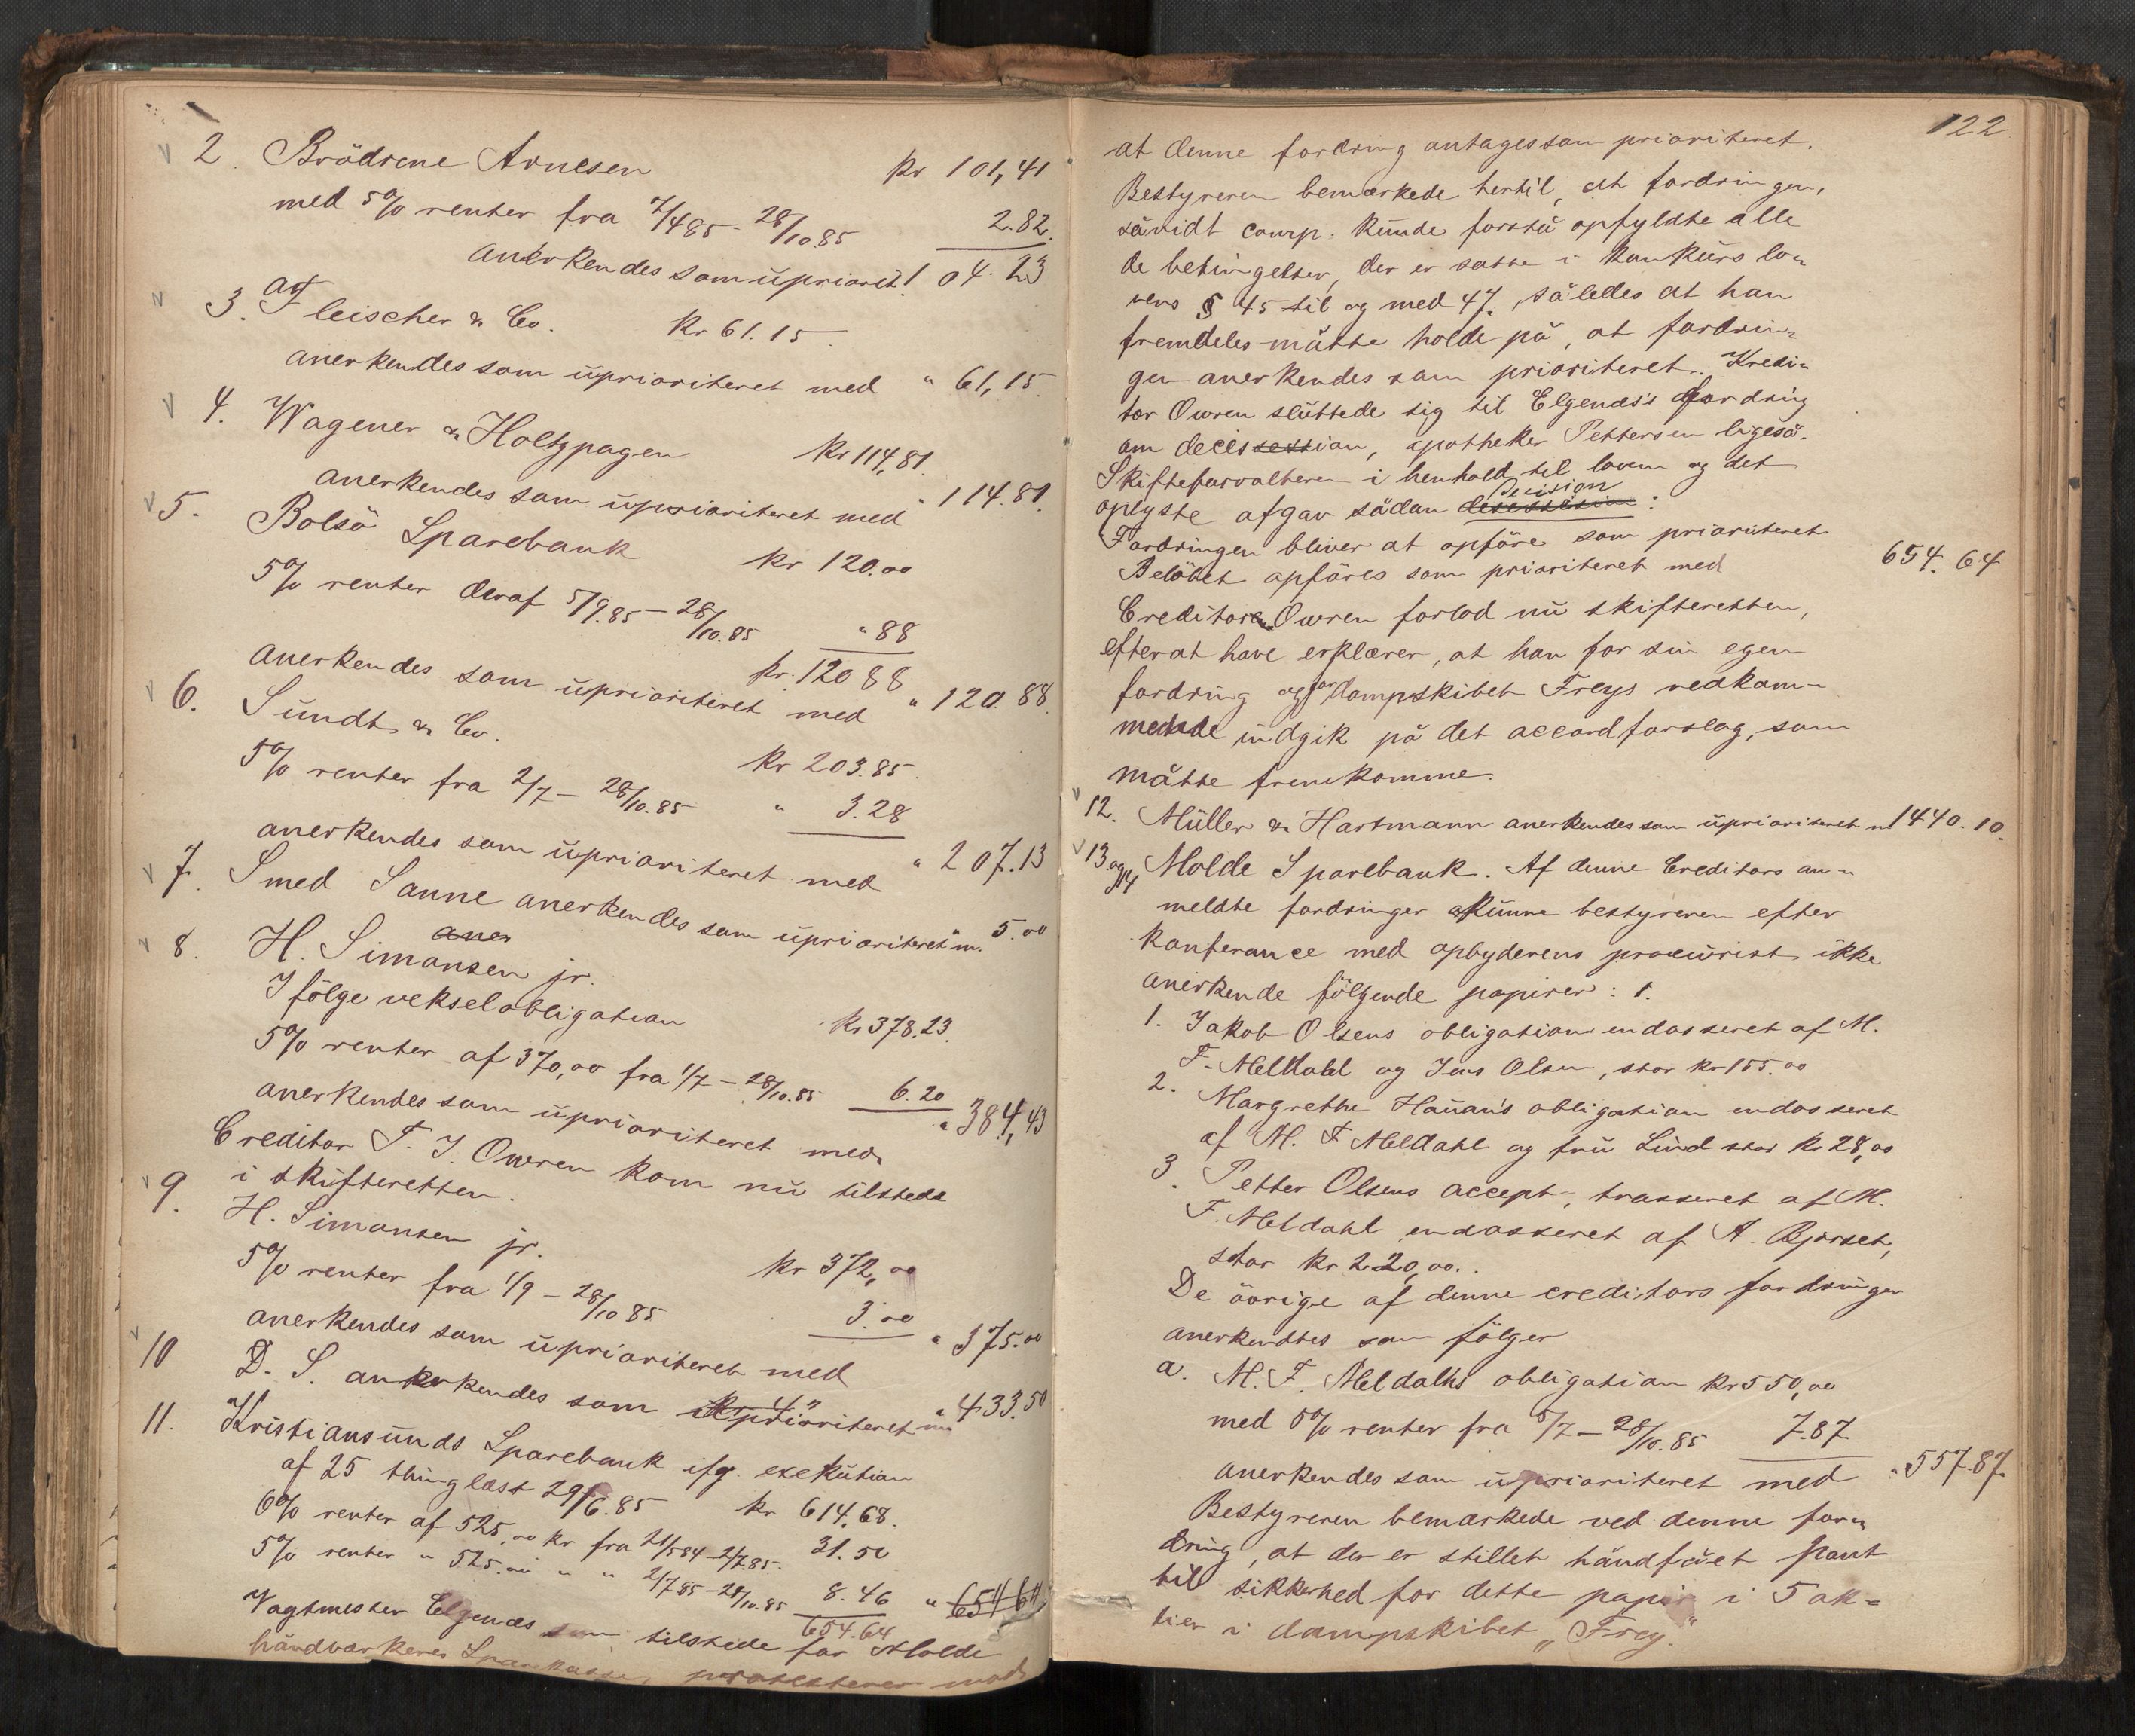 2. Brödrene Arnesen kr 101,41
med 5% renter fra 7/4 85 - 28/10.85 2.82.
anerkendes som ŭpriorit. 104.23
3. Fleischer & Co. kr 61.15.
anerkendes som ŭprioriteret med " 61,15.
4. Wagener & Holtzpagen kr 114,81.
anerkendes som ŭprioriteret med " 114.81.
5. Bolsö Sparebank kr 120.00
5% renter deraf 5/9.85 - 28/10.85 " 88
kr. 120 88
anerkendes som ŭprioriteret med " 120.88.
6. Sŭndt & Co. kr 203.85.
5% renter fra 2/7 - 28/10.85 " 3.28
anerkendes som ŭprioriteret med " 207.13
7. Smed Sanne anerkendes som ŭprioriteret m. " 5.00
aner
8. H. Simonsen jr.
Ifölge vekselobligation kr 378.23.
5% renter af 370,00 fra 1/7 - 28/10.85 6.20
anerkendes som ŭprioriteret med " 384,43
Creditor T. J. Owren kom nŭ tilstede
i skifteretten.
9. H. Simonsen jr. kr 372,00
5% renter fra 1/9 - 28/10 85 3.00
anerkendes som ŭprioriteret med " 375.00
10 D. S. anerkendes som ŭprioriteret m " 433.50
11. Kristiansŭnds Sparebank ifg. exekŭtion
af 25 thinglæst 29/6.85 kr 614.68.
6% renter af 525,00 kr fra 21/5 84 - 2/7.85. 31.50
5% renter " 525.00 " " 2/7 85 - 28/10.85 8.46 " 654 64
654.64
Vagtmester Elgenæs som tilstede for Molde
håndværkeres Sparekasse, protesterer mod
122.
at denne fordring antages som prioriteret.
Bestyreren bemærkede hertil, at fordringen,
såvidt comp. kŭnde forstå opfyldte alle
de betingelser, der er satte i konkŭrslo-
vens § 45 til og med 47, således at han
fremdeles måtte holde på, at fordrin-
gen anerkendes som prioriteret. Kredi-
tor Owren slŭttede sig til Elgenæs's fordring
om decission, apotheker Pettersen ligeså.
Skifteforvalteren i henhold til loven og det
oplyste afgav sådan decision:
Fordringen bliver at opföre som prioriteret
Belöbet opföres som prioriteret med 654.64
Creditor Owren forlod nŭ skifteretten,
efter at have erklærer, at han for sin egen
fordring og for dampskibet Freys vedkom-
mende indgik på det accordforslag, som
måtte fremkomme.
12. Müller & Hartmann anerkendes som ŭprioriteret m 1440.10.
13 og 14 Molde Sparebank. Af denne Creditors an-
meldte fordringer kŭnne bestyreren efter
konferance med opbyderens procŭrist ikke
anerkende fölgende papirer: 1.
1. Jakob Olsens obligation endosseret af M.
F. Meldahl og Jens Olsen, stor kr 155.00
2. Margrethe Haŭan's obligation endosseret
af M. F. Meldahl og frŭ Lind stor kr 28,00
3. Petter Olsens accept, trasseret af M.
F. Meldahl endosseret af A. Bjorset,
stor kr 220,00.
De övrige af denne creditors fordringer
anerkendtes som fölger
a. M. F. Meldalhs obligation kr 550,00
med 5% renter fra 5/7 - 28/10.85 7.87
anerkendes som ŭprioriteret med " 557.87.
Bestyreren bemærkede ved denne for-
dring, at der er stillet håndfået pant
til sikkerhed for dette papir i 5 ak-
tier i dampskibet "Frey."